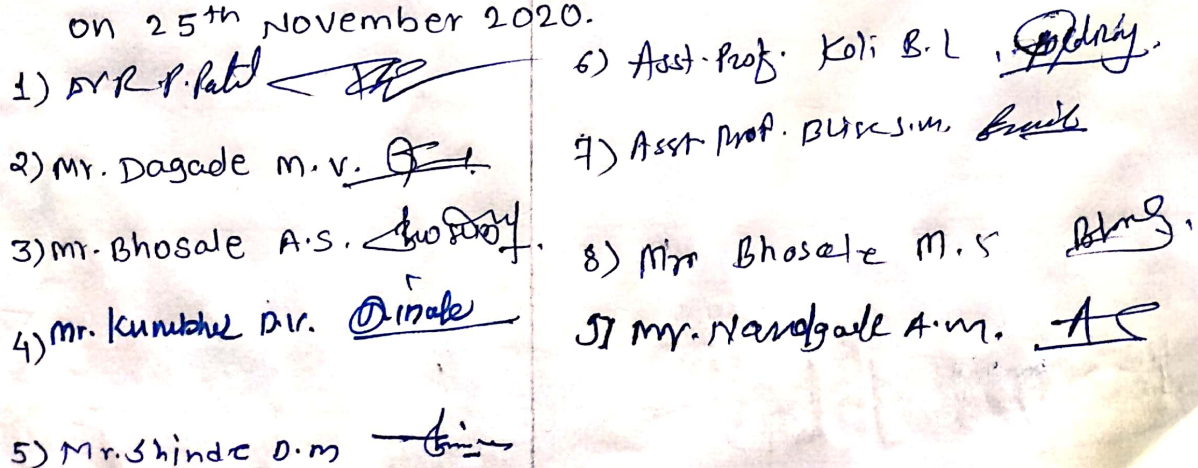 on 25th November 2020.
1) Dr R.P. Patil
2) Mr. Dagade M.V.
3) Mr. Bhosale A.S.
4) Mr. Kumbhar D.V.
5) Mr. Shinde D.M
6) Asst. Prof. Koli B.L
7) Asst Prof. S.M.
8) Miss Bhosale M.S
9) Mr. Nandgade A.M.